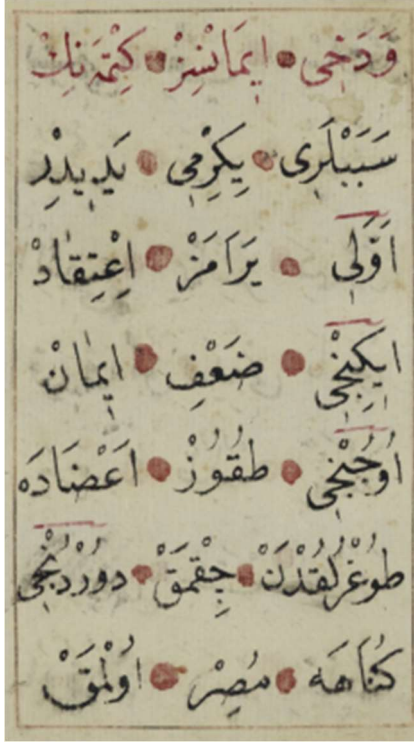 وَدَخِى اِيمَانْسِزْ كِتْمَنِكْ
سَبَبْلَرِى يِكِرْمِى يَدِيدِرْ
اَوَّلِى يَرَامَزْ اِعْتِقَادْ
اِيكِنْجِى ضَعْفِ اِيمَانْ
اُوچُنْجِى طُقُوزْ اَعْضَادَه
طُوغْرُلُقْدَنْ چِقْمَقْ دُورْدُنْجِى
كُنَاهَه مُصِرْ اُولْمَقْ